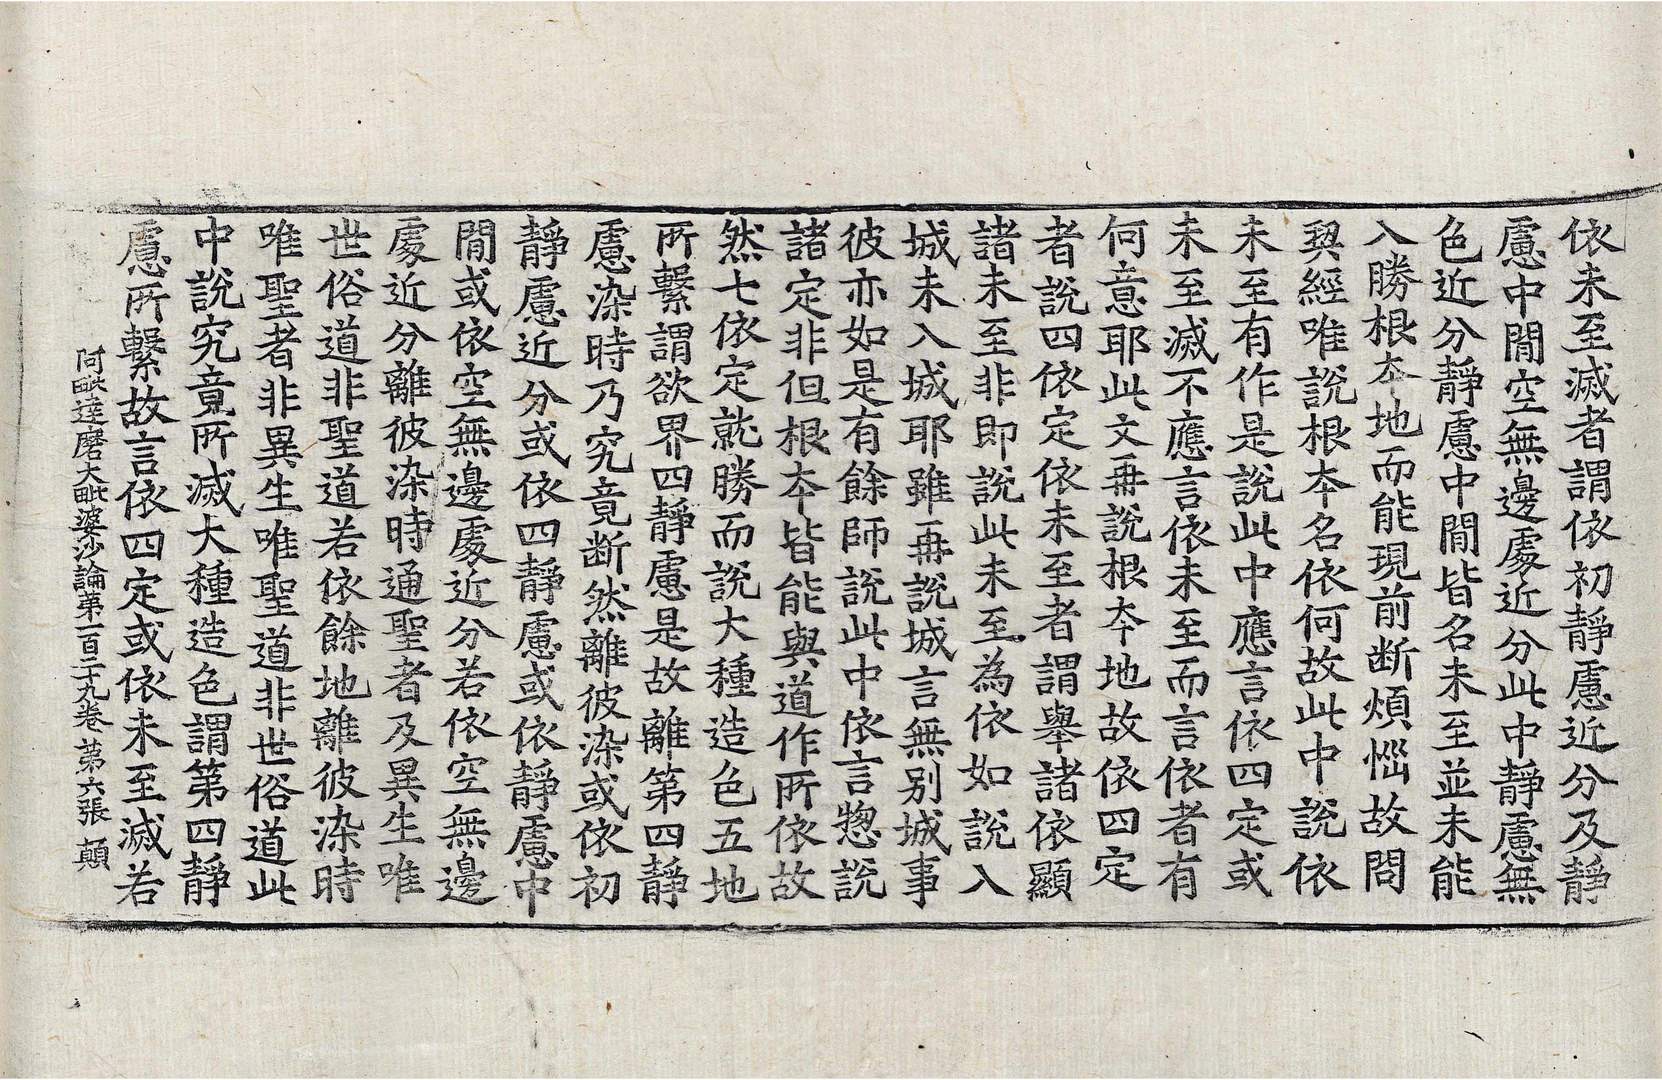 依未至滅者謂依初靜慮近分及靜
慮中閒空無邊處近分此中靜慮無
色近分靜慮中閒皆名未至並未能
入勝根本地而能現前斷煩惱故問
契經唯說根本名依何故此中說依
未至有作是說此中應言依四定或
未至滅不應言依未至而言依者有
何意耶此文再說根本地故依四定
者說四依定依未至者謂舉諸依顯
諸未至非即說此未至為依如說入
城未入城耶雖再說城言無別城事
彼亦如是有餘師說此中依言惣說
諸定非但根本皆能與道作所依故
然七依定就勝而說大種造色五地
所繫謂欲界四靜慮是故離第四靜
慮染時乃究竟斷然離彼染或依初
靜慮近分或依四靜慮或依靜慮中
閒或依空無邊處近分若依空無邊
處近分離彼染時通聖者及異生唯
世俗道非聖道若依餘地離彼染時
唯聖者非異生唯聖道非世俗道此
中說究竟所滅大種造色謂第四靜
慮所繫故言依四定或依未至滅若
阿毗達磨大毗婆沙論第一百二十九卷 第六張 顛